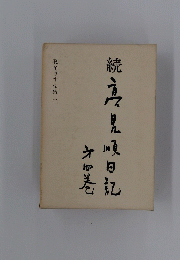 続
高見順日記
第四巻